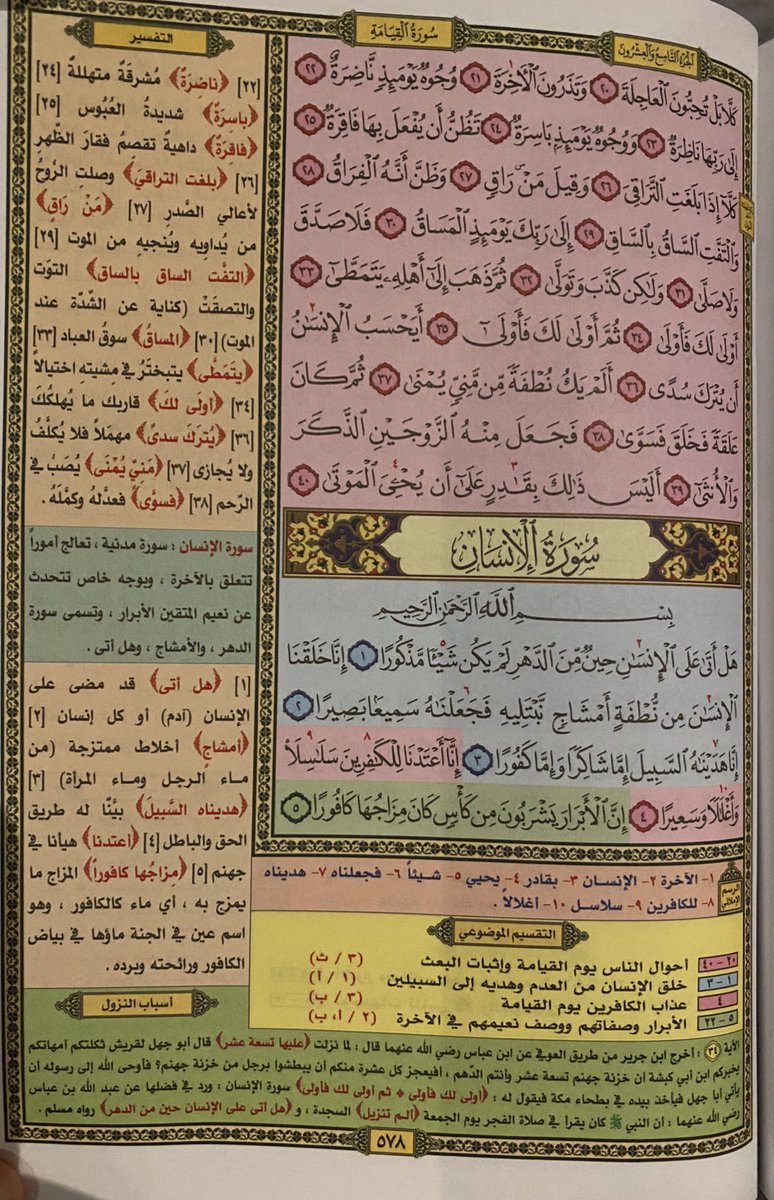 الجزء التاسع والعشرون
سورة القيامة
كَلَّا بَلْ تُحِبُّونَ الْعَاجِلَةَ ٢٠ وَتَذَرُونَ الْآخِرَةَ ٢١ وُجُوهٌ يَوْمَئِذٍ نَّاضِرَةٌ ٢٢
إِلَىٰ رَبِّهَا نَاظِرَةٌ ٢٣ وَوُجُوهٌ يَوْمَئِذٍ بَاسِرَةٌ ٢٤ تَظُنُّ أَن يُفْعَلَ بِهَا فَاقِرَةٌ ٢٥
كَلَّا إِذَا بَلَغَتِ التَّرَاقِيَ ٢٦ وَقِيلَ مَنْ ۜ رَاقٍ ٢٧ وَظَنَّ أَنَّهُ الْفِرَاقُ ٢٨
وَالْتَفَّتِ السَّاقُ بِالسَّاقِ ٢٩ إِلَىٰ رَبِّكَ يَوْمَئِذٍ الْمَسَاقُ ٣٠ فَلَا صَدَّقَ
وَلَا صَلَّىٰ ٣١ وَلَٰكِن كَذَّبَ وَتَوَلَّىٰ ٣٢ ثُمَّ ذَهَبَ إِلَىٰ أَهْلِهِ يَتَمَطَّىٰ ٣٣
أَوْلَىٰ لَكَ فَأَوْلَىٰ ٣٤ ثُمَّ أَوْلَىٰ لَكَ فَأَوْلَىٰ ٣٥ أَيَحْسَبُ الْإِنسَٰنُ
أَن يُتْرَكَ سُدًى ٣٦ أَلَمْ يَكُ نُطْفَةً مِّن مَّنِيٍّ يُمْنَىٰ ٣٧ ثُمَّ كَانَ
عَلَقَةً فَخَلَقَ فَسَوَّىٰ ٣٨ فَجَعَلَ مِنْهُ الزَّوْجَيْنِ الذَّكَرَ
وَالْأُنثَىٰ ٣٩ أَلَيْسَ ذَٰلِكَ بِقَٰدِرٍ عَلَىٰ أَن يُحْـِۧيَ الْمَوْتَىٰ ٤٠
سورة الإنسان
بِسْمِ اللَّهِ الرَّحْمَٰنِ الرَّحِيمِ
هَلْ أَتَىٰ عَلَى الْإِنسَٰنِ حِينٌ مِّنَ الدَّهْرِ لَمْ يَكُن شَيْـًٔا مَّذْكُورًا ١ إِنَّا خَلَقْنَا
الْإِنسَٰنَ مِن نُّطْفَةٍ أَمْشَاجٍ نَّبْتَلِيهِ فَجَعَلْنَٰهُ سَمِيعًۢا بَصِيرًا ٢
إِنَّا هَدَيْنَٰهُ السَّبِيلَ إِمَّا شَاكِرًا وَإِمَّا كَفُورًا ٣ إِنَّا أَعْتَدْنَا لِلْكَٰفِرِينَ سَلَٰسِلَا
وَأَغْلَٰلًا وَسَعِيرًا ٤ إِنَّ الْأَبْرَارَ يَشْرَبُونَ مِن كَأْسٍ كَانَ مِزَاجُهَا كَافُورًا ٥
الرسم الإملائي
١- الآخرة ٢- الإنسان ٣- بقادر ٤- يحيي ٥- شيئاً ٦- فجعلناه ٧- هديناه
٨- للكافرين ٩- سلاسل ١٠- أغلالاً .
التقسيم الموضوعي
٢٠ - ٤٠ أحوال الناس يوم القيامة وإثبات البعث (٣ / ث)
١ - ٣ خلق الإنسان من العدم وهديه إلى السبيلين (١ / أ)
٤ عذاب الكافرين يوم القيامة (٣ / ب)
٥ - ٢٢ الأبرار وصفاتهم ووصف نعيمهم في الآخرة (٢ / أ، ب)
التفسير
[٢٢] ﴿ناضِرَةٌ﴾ مُشرقَةٌ متهللةٌ [٢٤]
﴿باسِرَةٌ﴾ شديدةُ العُبُوس [٢٥]
﴿فاقِرَةٌ﴾ داهيةٌ تقصمُ فقارَ الظّهر
[٢٦] ﴿بلغت التراقيَ﴾ وصلتِ الرّوحُ
لأعالي الصَّدرِ [٢٧] ﴿مَنْ رَاقٍ﴾
من يُداويه ويُنجيهِ من الموت [٢٩]
﴿التفَّت الساق بالساق﴾ التوَت
والتصقَتْ (كناية عن الشّدّة عند
الموت) [٣٠] ﴿المساقُ﴾ سوقُ العباد [٣٣]
﴿يتَمَطَّى﴾ يتبخترُ في مِشيته اختيالاً
[٣٤] ﴿أولَى لكَ﴾ قاربك ما يُهلكُكَ
[٣٦] ﴿يُترَكَ سدىً﴾ مهمَلاً فلا يُكلَّفُ
ولا يُجازى [٣٧] ﴿مَنيّ يُمْنَى﴾ يُصَبُّ في
الرّحم [٣٨] ﴿فسوَّى﴾ فعدلهُ وكمَّلهُ .
سورة الإنسان : سورة مدنية ، تعالج أموراً
تتعلق بالآخرة ، وبوجه خاص تتحدث
عن نعيم المتقين الأبرار ، وتسمى سورة
الدهر ، والأمشاج ، وهل أتى .
[١] ﴿هل أتى﴾ قد مضى على
الإنسان (آدم) أو كل إنسان [٢]
﴿أمشاجٍ﴾ أخلاط ممتزجة (من
ماء الرجل وماء المرأة) [٣]
﴿هديناه السَّبيلَ﴾ بيَّنّا له طريق
الحق والباطل [٤] ﴿أعتدنا﴾ هيأنا في
جهنم [٥] ﴿مِزاجُها كافوراً﴾ المزاج ما
يمزج به ، أي ماء كالكافور ، وهو
اسم عين في الجنة ماؤها في بياض
الكافور ورائحته وبرده .
أسباب النزول
الآية ٣٤ : أخرج ابن جرير من طريق العوفي عن ابن عباس رضي الله عنهما قال : لما نزلت ﴿عليها تسعة عشر﴾ قال أبو جهل لقريش ثكلتكم أمهاتكم
يخبركم ابن أبي كبشة أن خزنة جهنم تسعة عشر وأنتم الدَّهم ، أفيعجز كل عشرة منكم أن يبطشوا برجل من خزنة جهنم؟ فأوحى الله إلى رسوله أن
يأتي أبا جهل فيأخذ بيده في بطحاء مكة فيقول له : ﴿أولى لك فأولى * ثم أولى لك فأولى﴾ سورة الإنسان : ورد في فضلها عن عبد الله بن عباس
رضي الله عنهما : أن النبي ﷺ كان يقرأ في صلاة الفجر يوم الجمعة ﴿الـم تنزيل﴾ السجدة ، و ﴿هل أتى على الإنسان حين من الدهر﴾ رواه مسلم .
٥٧٨